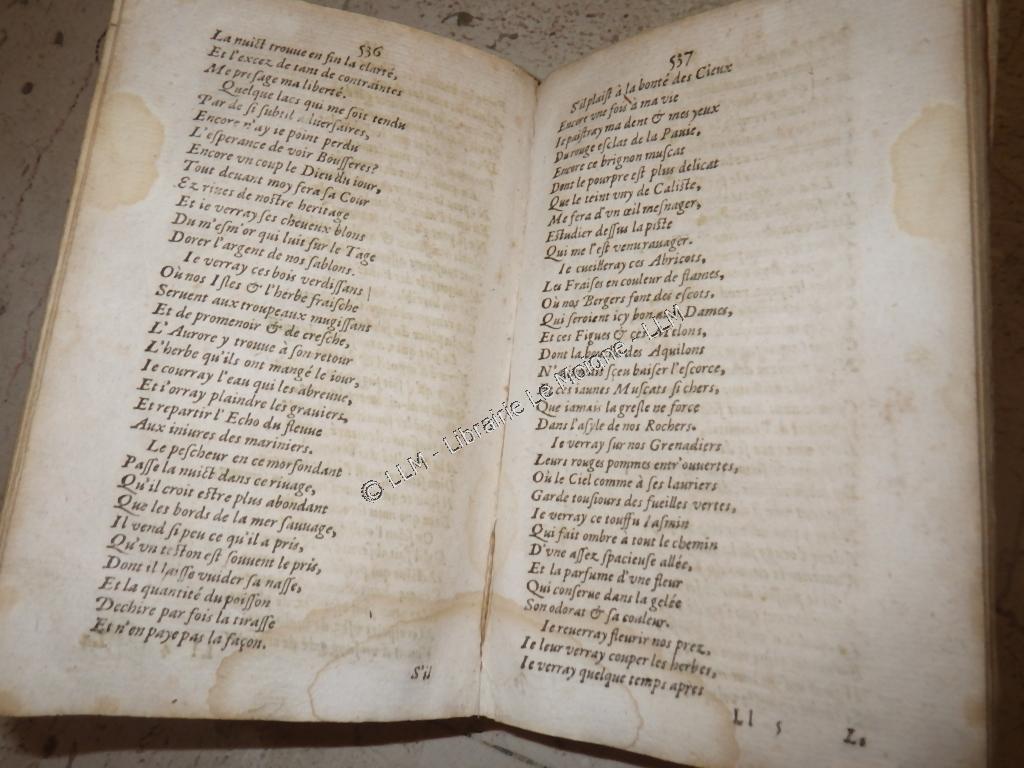 536
La nuict trouue en fin la clarté,
Et l'excez de tant de contraintes
Me presage ma liberté.
Quelque lacs qui me soit tendu
Par de si subtil aduersaires,
Encore n'ay ie point perdu
L'esperance de voir Bousseres?
Encore vn coup le Dieu du iour,
Tout deuant moy fera sa Cour
Ez riues de nostre heritage
Et ie verray ses cheueux blons
Du m'esm'or qui luit sur le Tage
Dorer l'argent de nos sablons.
Ie verray ces bois verdissans
Où nos Isles & l'herbe fraische
Seruent aux troupeaux mugissans
Et de promenoir & de cresche,
L'Aurore y trouue à son retour
L'herbe qu'ils ont mangé le iour,
Ie courray l'eau qui les abreuue,
Et i'orray plaindre les grauiers,
Et repartir l'Echo du fleuue
Aux iniures des mariniers.
Le pescheur en ce morfondant
Passe la nuict dans ce riuage,
Qu'il croit estre plus abondant
Que les bords de la mer sauuage,
Il vend si peu ce qu'il a pris,
Qu'vn teston est souuent le pris,
Dont il laisse vuider sa nasse,
Et la quantité du poisson
Dechire par fois la tirasse
Et n'en paye pas la façon.
S'il
537
S'il plaist à la bonté des Cieux
Encore vne fois à ma vie
Ie paistray ma dent & mes yeux
Du rouge esclat de la Pauie,
Encore ce brignon muscat
Dont le pourpre est plus delicat
Que le teint vny de Caliste,
Me fera d'vn œil mesnager,
Estudier dessus la piste
Qui me l'est venu rauager.
Ie cueilleray ces Abricots,
Les Fraises en couleur de flames,
Où nos Bergers font des escots,
Qui seroient icy bonnes à Dames,
Et ces Figues & ces Melons,
Dont la bouche des Aquilons
N'a iamais sceu baiser l'escorce,
Et ces iaunes Muscats si chers,
Que iamais la gresle ne force
Dans l'asyle de nos Rochers.
Ie verray sur nos Grenadiers
Leurs rouges pommes entr'ouuertes,
Où le Ciel comme à ses lauriers
Garde tousiours des fueilles vertes,
Ie verray ce touffu Iasmin
Qui fait ombre à tout le chemin
D'vne assez spacieuse allée,
Et la parfume d'vne fleur
Qui conserue dans la gelée
Son odorat & sa couleur.
Ie reuerray fleurir nos prez,
Ie leur verray couper les herbes,
Ie verray quelque temps apres
Ll 5
Le
© LLM - Librairie Le Moigne - LLM